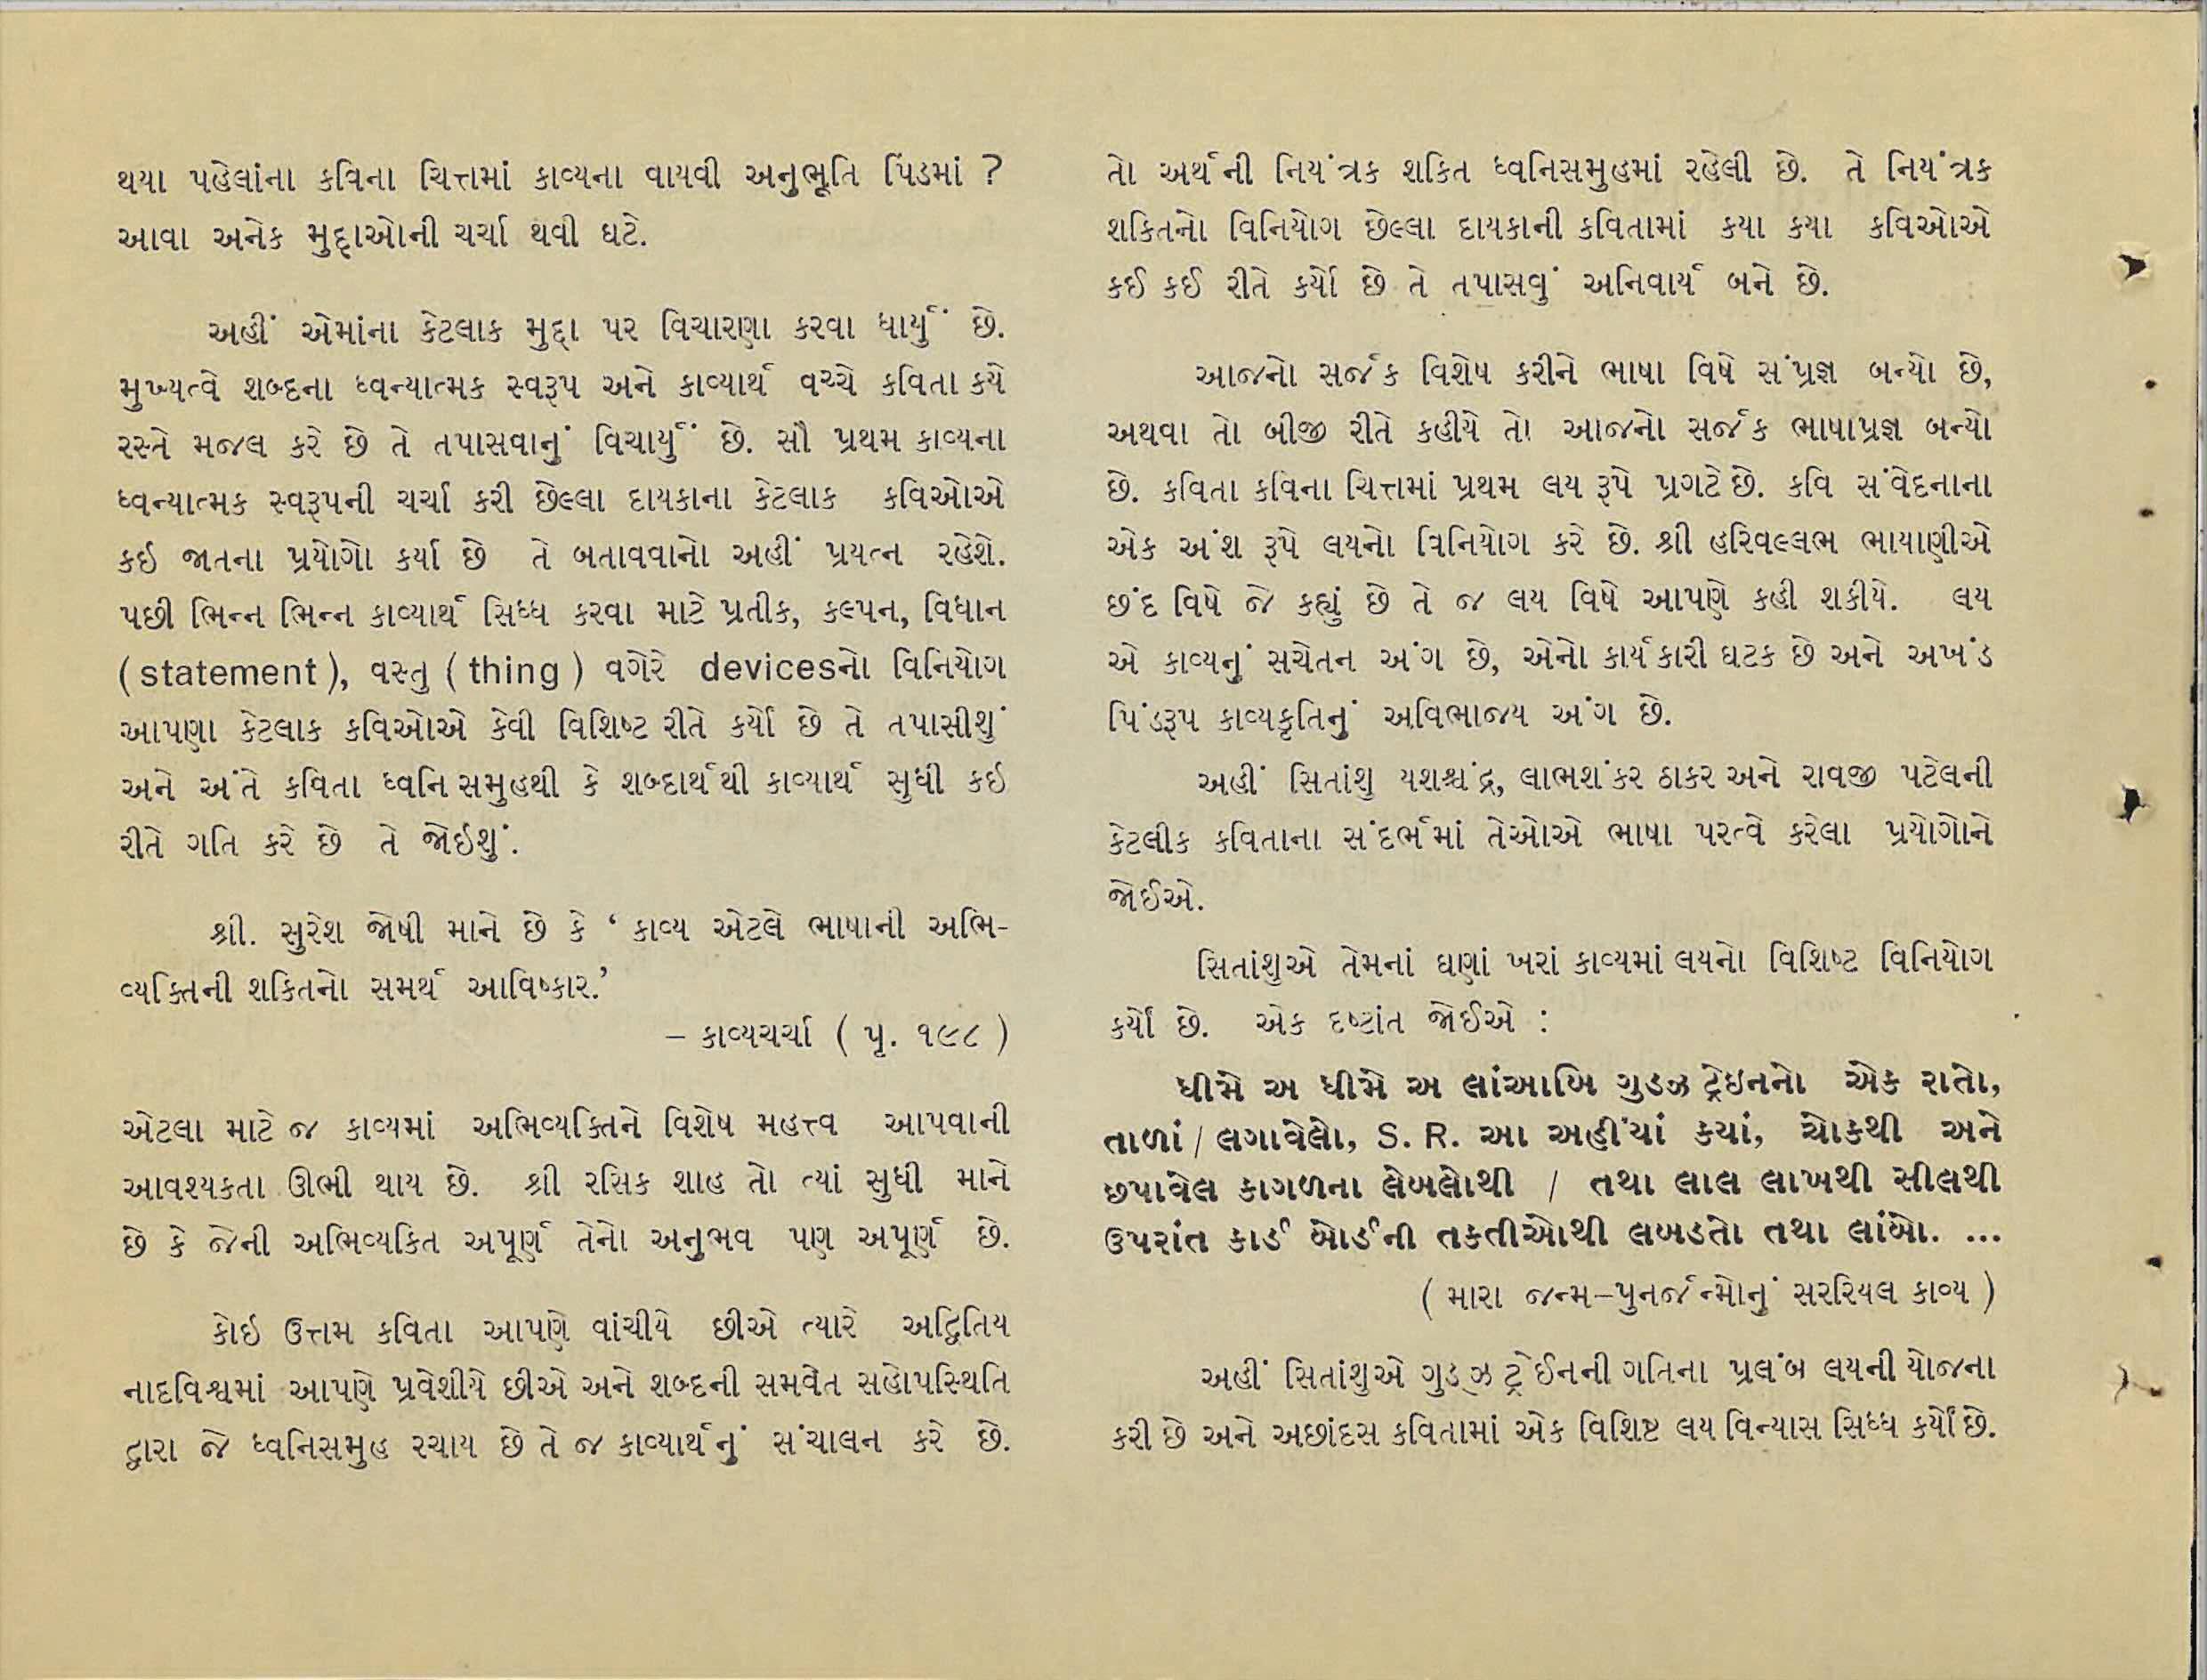 થયા પહેલાંના કવિના ચિત્તમાં કાવ્યના વાયવી અનુભૂતિ પિંડમાં ?
આવા અનેક મુદ્દાઓની ચર્ચા થવી ઘટે.
અહીં એમાંના કેટલાક મુદ્દા પર વિચારણા કરવા ધાર્યું છે.
મુખ્યત્વે શબ્દના ધ્વન્યાત્મક સ્વરૂપ અને કાવ્યાર્થ વચ્ચે કવિતા કયે
રસ્તે મજલ કરે છે તે તપાસવાનું વિચાર્યું છે. સૌ પ્રથમ કાવ્યના
ધ્વન્યાત્મક સ્વરૂપની ચર્ચા કરી છેલ્લા દાયકાના કેટલાક કવિઓએ
કઇ જાતના પ્રયોગો કર્યા છે તે બતાવવાનો અહીં પ્રયત્ન રહેશે.
પછી ભિન્ન ભિન્ન કાવ્યાર્થ સિધ્ધ કરવા માટે પ્રતીક, કલ્પન, વિધાન
(statement), વસ્તુ (thing) વગેરે devicesનો વિનિયોગ
આપણા કેટલાક કવિઓએ કેવી વિશિષ્ટ રીતે કર્યો છે તે તપાસીશું
અને અંતે કવિતા ધ્વનિ સમુહથી કે શબ્દાર્થથી કાવ્યાર્થ સુધી કઇ
રીતે ગતિ કરે છે તે જોઇશું.
શ્રી. સુરેશ જોષી માને છે કે ‘ કાવ્ય એટલે ભાષાની અભિ-
વ્યક્તિની શકિતનો સમર્થ આવિષ્કાર.’
– કાવ્યચર્ચા ( પૃ. ૧૯૮ )
એટલા માટે જ કાવ્યમાં અભિવ્યક્તિને વિશેષ મહત્ત્વ આપવાની
આવશ્યકતા ઊભી થાય છે. શ્રી રસિક શાહ તો ત્યાં સુધી માને
છે કે જેની અભિવ્યકિત અપૂર્ણ તેનો અનુભવ પણ અપૂર્ણ છે.
કોઇ ઉત્તમ કવિતા આપણે વાંચીયે છીએ ત્યારે અદ્વિતિય
નાદવિશ્વમાં આપણે પ્રવેશીયે છીએ અને શબ્દની સમવેત સહોપસ્થિતિ
દ્વારા જે ધ્વનિસમુહ રચાય છે તે જ કાવ્યાર્થનું સંચાલન કરે છે.
તો અર્થની નિયંત્રક શકિત ધ્વનિસમુહમાં રહેલી છે. તે નિયંત્રક
શકિતનો વિનિયોગ છેલ્લા દાયકાની કવિતામાં કયા કયા કવિઓએ
કઈ કઈ રીતે કર્યો છે તે તપાસવું અનિવાર્ય બને છે.
આજનો સર્જક વિશેષ કરીને ભાષા વિષે સંપ્રજ્ઞ બન્યો છે,
અથવા તો બીજી રીતે કહીયે તો આજનો સર્જક ભાષાપ્રજ્ઞ બન્યો
છે. કવિતા કવિના ચિત્તમાં પ્રથમ લય રૂપે પ્રગટે છે. કવિ સંવેદનાના
એક અંશ રૂપે લયનો વિનિયોગ કરે છે. શ્રી હરિવલ્લભ ભાયાણીએ
છંદ વિષે જે કહ્યું છે તે જ લય વિષે આપણે કહી શકીયે. લય
એ કાવ્યનું સચેતન અંગ છે, એનો કાર્યકારી ઘટક છે અને અખંડ
પિંડરૂપ કાવ્યકૃતિનું અવિભાજય અંગ છે.
અહીં સિતાંશુ યશશ્ચંદ્ર, લાભશંકર ઠાકર અને રાવજી પટેલની
કેટલીક કવિતાના સંદર્ભમાં તેઓએ ભાષા પરત્વે કરેલા પ્રયોગોને
જોઈએ.
સિતાંશુએ તેમનાં ઘણાં ખરાં કાવ્યમાં લયનો વિશિષ્ટ વિનિયોગ
કર્યો છે. એક દષ્ટાંત જોઈએ :
ધીમે અ ધીમે અ લાંઆબિ ગુડઝ ટ્રેઇનનો એક રાતો,
તાળાં / લગાવેલો, S. R. આ અહીંયાં કયાં, ચોકથી અને
છપાવેલ કાગળના લેબલોથી / તથા લાલ લાખથી સીલથી
ઉપરાંત કાર્ડ બોર્ડની તકતીઓથી લબડતો તથા લાંબો. ...
( મારા જન્મ–પુનર્જન્મોનું સરરિયલ કાવ્ય )
અહીં સિતાંશુએ ગુડ્ઝ ટ્રેઈનની ગતિના પ્રલંબ લયની યોજના
કરી છે અને અછાંદસ કવિતામાં એક વિશિષ્ટ લય વિન્યાસ સિધ્ધ કર્યો છે.